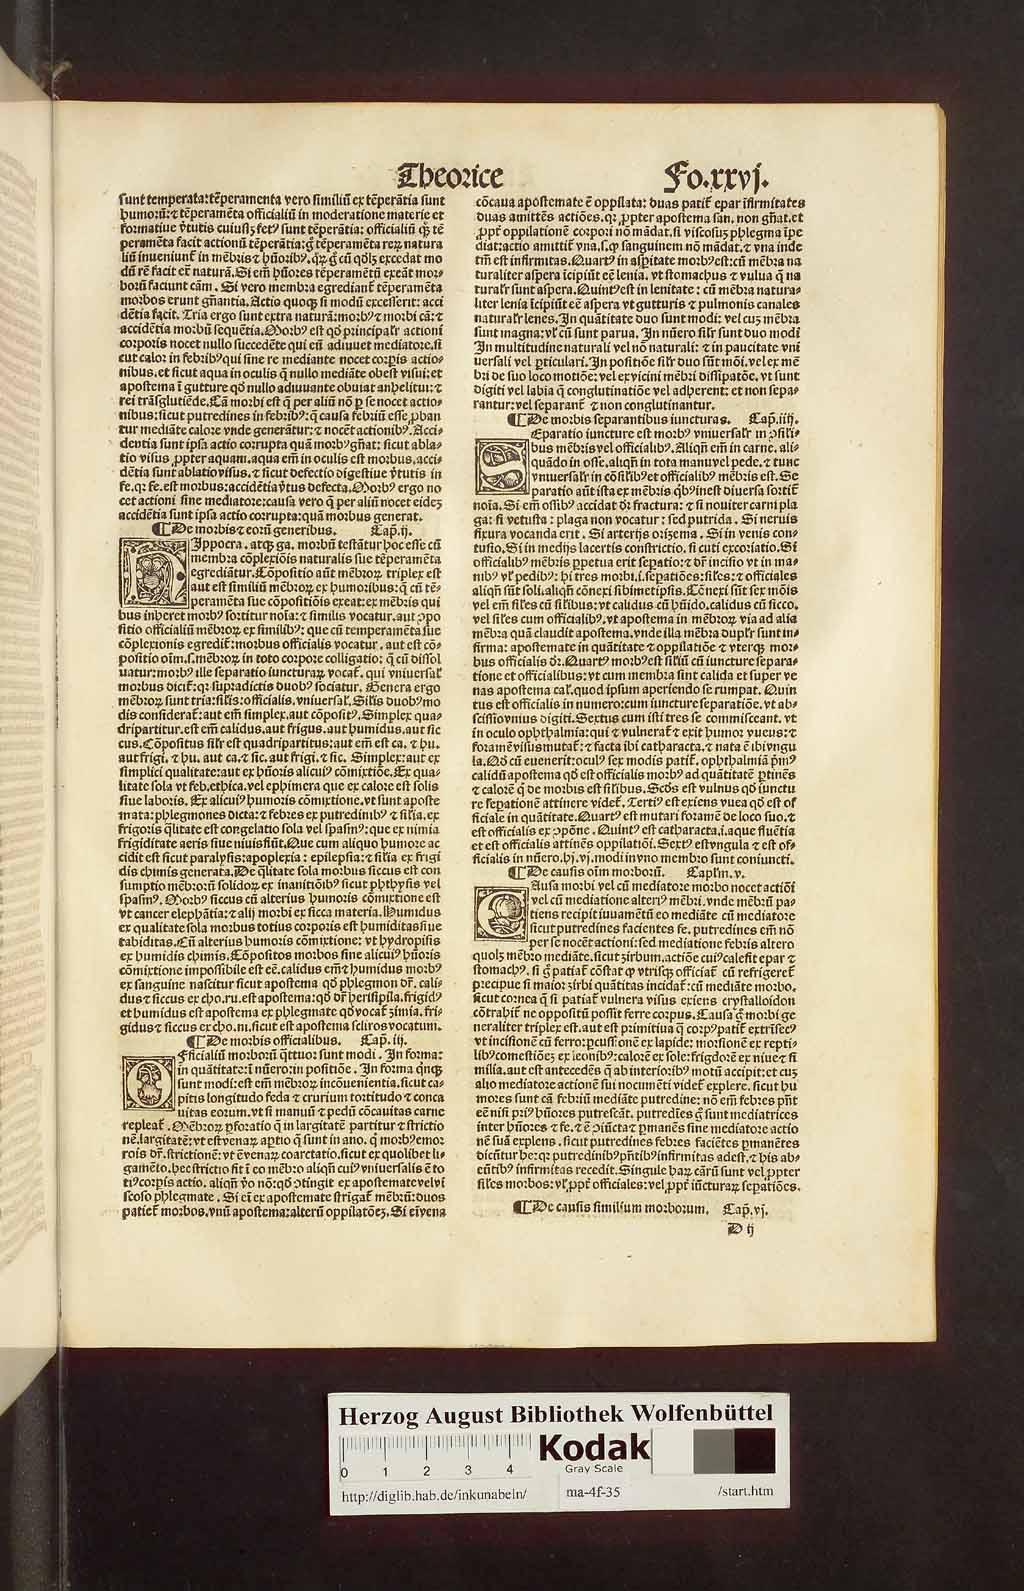 Theorice
Fo.xxvj.
sunt temperata: tēperamenta vero similiū ex tēperātia sunt
humorū: ⁊ tēperamēta officialiū in moderatione materie et
formatiue v̄tutis cuiuslꝫ fetꝰ sunt tēperātia: officialiū qꝫ tē
peramēta facit actionū tēperātia: g̊ tēperamēta reꝝ natura
liū inueniunt̄ in mēbris ⁊ hūoribꝰ. q̄ꝝ g̊ cū qōlꝫ excedat mo
dū rē facit eē naturā. Si em̄ hūores tēperamētū exeāt mor⸗
borū faciunt cām. Si vero membra egrediant̄ tēperamēta
morbos erunt gn̄antia. Actio quoqꝫ si modū excesserit: acci
dētia facit. Tria ergo sunt extra naturā: morbꝰ ⁊ morbi cā: ⁊
accidētia morbū sequētia. Morbꝰ est qđ principalr̄ actioni
corporis nocet nullo succedēte qui eū adiuuet mediatore. si
cut calor in febribꝰ qui sine re mediante nocet corꝑis actio⸗
nibus. et sicut aqua in oculis q̄ nullo mediāte obest visui: et
apostema ī gutture qđ nullo adiuuante obuiat anhelitui: ⁊
rei trāsglutiēde. Cā morbi est q̄ per aliū nō ꝑ se nocet actio⸗
nibus: sicut putredines in febribꝰ: q̄ causa febriū esse ꝓban
tur mediāte calore vnde generātur: ⁊ nocēt actionibꝰ. Acci⸗
dentia sunt ipsa actio corrupta quā morbꝰ gn̄at: sicut abla⸗
tio visus ꝓpter aquam. aqua em̄ in oculis est morbus. acci⸗
dētia sunt ablatio visus. ⁊ sicut defectio digestiue v̄tutis in
fe. qꝛ fe. est morbus: accidētia v̄tus defecta. Morbꝰ ergo no
cet actioni sine mediatore: causa vero q̄ per aliū nocet eideꝫ
accidētia sunt ipsa actio corrupta: quā morbus generat.
¶ De morbis ⁊ eorū generibus. Cap̄. ij.
HIppocra. atqꝫ ga. morbū testātur hoc esse cū
membra cōplexiōis naturalis sue tēperamēta
egrediātur. Cōpositio aūt mēbroꝝ triplex est
aut est similiū mēbroꝝ ex humoribus: q̄ cū tē⸗
peramēta sue cōpositiōis exeat: ex mēbris qui
bus inheret morbꝰ sortitur noīa: ⁊ similis vocatur. aut ꝓpo
sitio officialiū mēbroꝝ ex similibꝰ: que cū temperamēta sue
cōplexionis egredit̄: morbus officialis vocatur. aut est cō⸗
positio oīm .s. mēbroꝝ in toto corpore colligatio: q̄ cū dissol
uatur: morbꝰ ille separatio iuncturaꝝ vocat̄. qui vniuersal'
morbus dicit̄: qꝛ supradictis duobꝰ sociatur. Genera ergo
mēbroꝝ sunt tria: sil'is: officialis. vniuersal'. Sil'is duobꝰ mo
dis considerat̄: aut em̄ simplex. aut cōpositꝰ. Simplex qua⸗
dripartitur. est em̄ calidus. aut frigus. aut humidus. aut sic
cus. Cōpositus sil'r est quadripartitus: aut em̄ est ca. ⁊ hu.
aut frigi. ⁊ hu. aut ca. ⁊ sic. aut frigi. ⁊ sic. Simplex: aut ex
simplici qualitate: aut ex hūoris alicuiꝰ cōmixtiōe. Ex qua⸗
litate sola vt feb. ethica. vel ephimera que ex calore est solis
siue laboris. Ex alicuiꝰ humoris cōmixtione. vt sunt aposte
mata: phlegmones dicta: ⁊ febres ex putredinibꝰ ⁊ sil'ia. ex
frigoris q̄litate est congelatio sola vel spasmꝰ: que ex nimia
frigiditate aeris siue niuis fiūt. Que cum aliquo humore ac
cidit est sicut paralysis: apoplexia: epilepsia: ⁊ sil'ia ex frigi
dis chimis generata. De q̄litate sola morbus siccus est con
sumptio mēbrorū solidoꝝ ex inanitiōibꝰ sicut phthysis vel
spasmꝰ. Morbꝰ siccus cū alterius humoris cōmixtione est
vt cancer elephātia: ⁊ alij morbi ex sicca materia. Humidus
ex qualitate sola morbus totius corporis est humiditas siue
tabiditas. Cū alterius humoris cōmixtione: vt hydropisis
ex humidis chimis. Cōpositos morbos sine alicuiꝰ hūoris
cōmixtione impossibile est eē. calidus em̄ ⁊ humidus morbꝰ
ex sanguine nascitur sicut apostema qđ phlegmon dr̄. cali⸗
dus ⁊ siccus ex cho. ru. est apostema: qđ dr̄ herisipila. frigidꝰ
et humidus est apostema ex phlegmate qđ vocat̄ zimia. fri⸗
gidus ⁊ siccus ex cho. ni. sicut est apostema scliros vocatum.
¶ De morbis officialibus. Cap̄. iij.
OFficialiū morborū q̄ttuor sunt modi. In forma:
in quātitate: ī nūero: in positiōe. In forma q̄nqꝫ
sunt modi: est em̄ mēbroꝝ incōuenientia. sicut ca⸗
pitis longitudo feda ⁊ crurium tortitudo ⁊ conca
uitas eorum. vt si manuū ⁊ pedū cōcauitas carne
repleat̄. Mēbroꝝ ꝑforatio q̄ in largitatē partitur ⁊ strictio
nē. largitatē: vt est venaꝝ aꝑtio q̄ sunt in ano. q̄ morbꝰ emor
rois dr̄. strictionē: vt ē venaꝝ coarctatio. sicut ex quolibet li⸗
gamēto. hec strictio fit ī eo mēbro aliqn̄ cuiꝰ vniuersalis ē to
tiꝰ corꝑis actio. aliqn̄ v̄o nō: qđ ꝯtingit ex apostemate vel vi
scoso phlegmate. Si eī ex apostemate strīgat̄ mēbrū: duos
patiet̄ morbos. vnū apostema: alterū oppilatōeꝫ. Si eī vena
cōcaua apostemate ē oppilata: duas patit̄ epar īfirmitates
duas amittēs actiōes. qꝛ ꝓpter apostema san. non gn̄at. et
ꝓpt̄ oppilationē corpori nō mādat. si viscosuꝫ phlegma īpe
diat: actio amittit̄ vna .s. ꝙ sanguinem nō mādat. ⁊ vna inde
tm̄ est infirmitas. Quartꝰ in asꝑitate morbꝰ est: cū mēbra na
turaliter aspera īcipiūt eē lenia. vt stomachus ⁊ vulua q̄ na
tural'r sunt aspera. Quintꝰ est in lenitate: cū mēbra natura⸗
liter lenia īcipiūt eē aspera vt gutturis ⁊ pulmonis canales
natural'r lenes. In quātitate duo sunt modi: vel cuꝫ mēbra
sunt magna: vl' cū sunt parua. In nūero sil'r sunt duo modi
In multitudine naturali vel nō naturali: ⁊ in paucitate vni
uersali vel ꝑticulari. In positiōe sil'r duo sūt mōi. vel ex mē
bri de suo loco motiōe: vel ex vicini mēbri dissipatōe. vt sunt
digiti vel labia q̄ conglutinatiōe vel adherent: et non sepa⸗
rantur: vel separant̄ ⁊ non conglutinantur.
¶ De morbis separantibus iuncturas. Cap̄. iiij.
SEparatio iuncture est morbꝰ vniuersal'r in ꝯsili⸗
bus mēbris vel officialibꝰ. Aliqn̄ em̄ in carne. ali⸗
quādo in osse. aliqn̄ in tota manu vel pede. ⁊ tunc
vniuersal'r in cōsil'ibꝰ et officialibꝰ mēbris est. Se
paratio aūt ista ex mēbris q̄bꝰ inest diuersa sortit̄
noīa. Si em̄ ossibꝰ accidat dr̄ fractura: ⁊ si nouiter carni pla
ga: si vetusta: plaga non vocatur: sed putrida. Si neruis
fixura vocanda erit. Si arterijs orizema. Si in venis con⸗
tusio. Si in medijs lacertis constrictio. si cuti excoriatio. Si
officialibꝰ mēbris ꝓpria erit seꝑatio: ⁊ dr̄ incisio vt in ma⸗
nibꝰ vl' pedibꝰ: hi tres morbi .i. seꝑatiōes: sil'es: ⁊ officiales
aliqn̄ sūt soli. aliqn̄ cōnexi sibimetipsis. Cōnexi sūt sex mōis
vel em̄ sil'es cū sil'ibus: vt calidus cū hūido. calidus cū sicco.
vel sil'es cum officialibꝰ. vt apostema in mēbroꝝ via ad alia
mēbra quā claudit apostema. vnde illa mēbra dupl'r sunt in⸗
firma: apostemate in quātitate ⁊ oppilatiōe ⁊ vterqꝫ mor⸗
bus officialis dr̄. Quartꝰ morbꝰ est sil'iū cū iuncture separa⸗
tione et officialibus: vt cum membra sint calida et super ve
nas apostema cal. quod ipsum aperiendo se rumpat. Quin
tus est officialis in numero: cum iuncture separatiōe. vt ab⸗
scissio vnius digiti. Sextus cum isti tres se commisceant. vt
in oculo ophthalmia: qui ⁊ vulnerat̄ ⁊ exit humor vueus: ⁊
foramē visus mutat̄: ⁊ facta ibi catharacta. ⁊ nata ē ibi vngu
la. Qđ cū euenerit: oculꝰ sex modis patit̄. ophthalmiā pʳmꝰ
calidū apostema qđ est officialis morbꝰ ad quātitatē ꝑtinēs
⁊ calorē q̄ de morbis est sil'ibus. Scđs est vulnus qđ iunctu
re seꝑationē attinere videt̄. Tertiꝰ est exiens vuea qđ est of
ficiale in quātitate. Quartꝰ est mutari foramē de loco suo. ⁊
est officialis ex ꝓpōne. Quintꝰ est catharacta .i. aque fluētia
et est officialis attinēs oppilatiōi. Sextꝰ est vngula ⁊ est of⸗
ficialis in nūero. hi .vj. modi in vno membro sunt coniuncti.
¶ De causis oīm morborū. Caplm̄. v.
CAusa morbi vel cū mediatore morbo nocet actiōi
vel cū mediatione alteriꝰ mēbri. vnde mēbrū pa⸗
tiens recipit iuuamētū eo mediāte cū mediatore
sicut putredines facientes fe. putredines em̄ nō
per se nocēt actioni: sed mediatione febris altero
quolꝫ mēbro mediāte. sicut zirbum. actiōe cuiꝰ calefit epar ⁊
stomachꝰ. si g̊ patiat̄ cōstat ꝙ vtrisqꝫ officiat̄ cū refrigeret̄
precipue si maior zirbi quātitas incidat̄: cū mediāte morbo.
sicut cornea q̄ si patiat̄ vulnera visus exiens crystalloidon
cōtrahit̄ ne oppositū possit ferre corpus. Causa g̊ morbi ge
neraliter triplex est. aut est primitiua q̄ corpꝰ patit̄ extrīsecꝰ
vt incisionē cū ferro: ꝑcussionē ex lapide: morsionē ex repti⸗
libꝰ: comestiōeꝫ ex leonibꝰ: calorē ex sole: frigdorē ex niue ⁊ si
milia. aut est antecedēs q̄ ab interioribꝰ motū accipit: et cuꝫ
alio mediatore actionē sui nocumēti videt̄ explere. sicut hu
mores sunt cā febriū mediāte putredine: nō em̄ febres pn̄t
eē nisi priꝰ hūores putrescāt. putredīes g̊ sunt mediatrices
inter hūores ⁊ fe. ⁊ ē ꝯiūcta ⁊ ꝑmanēs sine mediatore actio
nē suā explens. sicut putredines febres faciētes ꝑmanētes
dicūtur he: qꝛ putredinibꝰ pn̄tibꝰ infirmitas adest. ⁊ his ab⸗
eūtibꝰ infirmitas recedit. Singule haꝝ cārū sunt vel ꝓpter
sil'es morbos: vl' ꝓpt̄ officiales: vel ꝓpt̄ iūcturaꝝ seꝑatiōes.
¶ De causis similium morborum. Cap̄. vj.
D ij
Herzog August Bibliothek Wolfenbüttel
0 1 2 3 4
Kodak
Gray Scale
http://diglib.hab.de/inkunabeln/
ma-4f-35
/start.htm